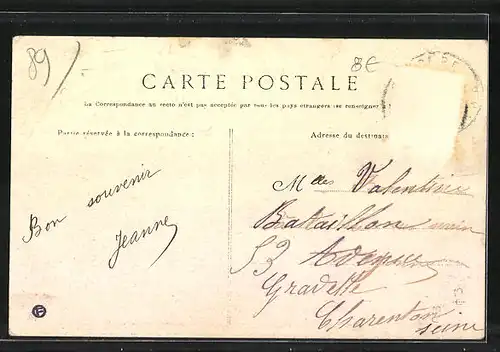 89)
8€
CARTE POSTALE
La Correspondance au recto n'est pas acceptée par tous les pays étrangers (se renseigner
Partie réservée à la correspondance :
Adresse du destinata
Mdes Valentine
Bataillon
53 Avenue
Gravelle
Charenton
Seine
Bon souvenir
Jeanne